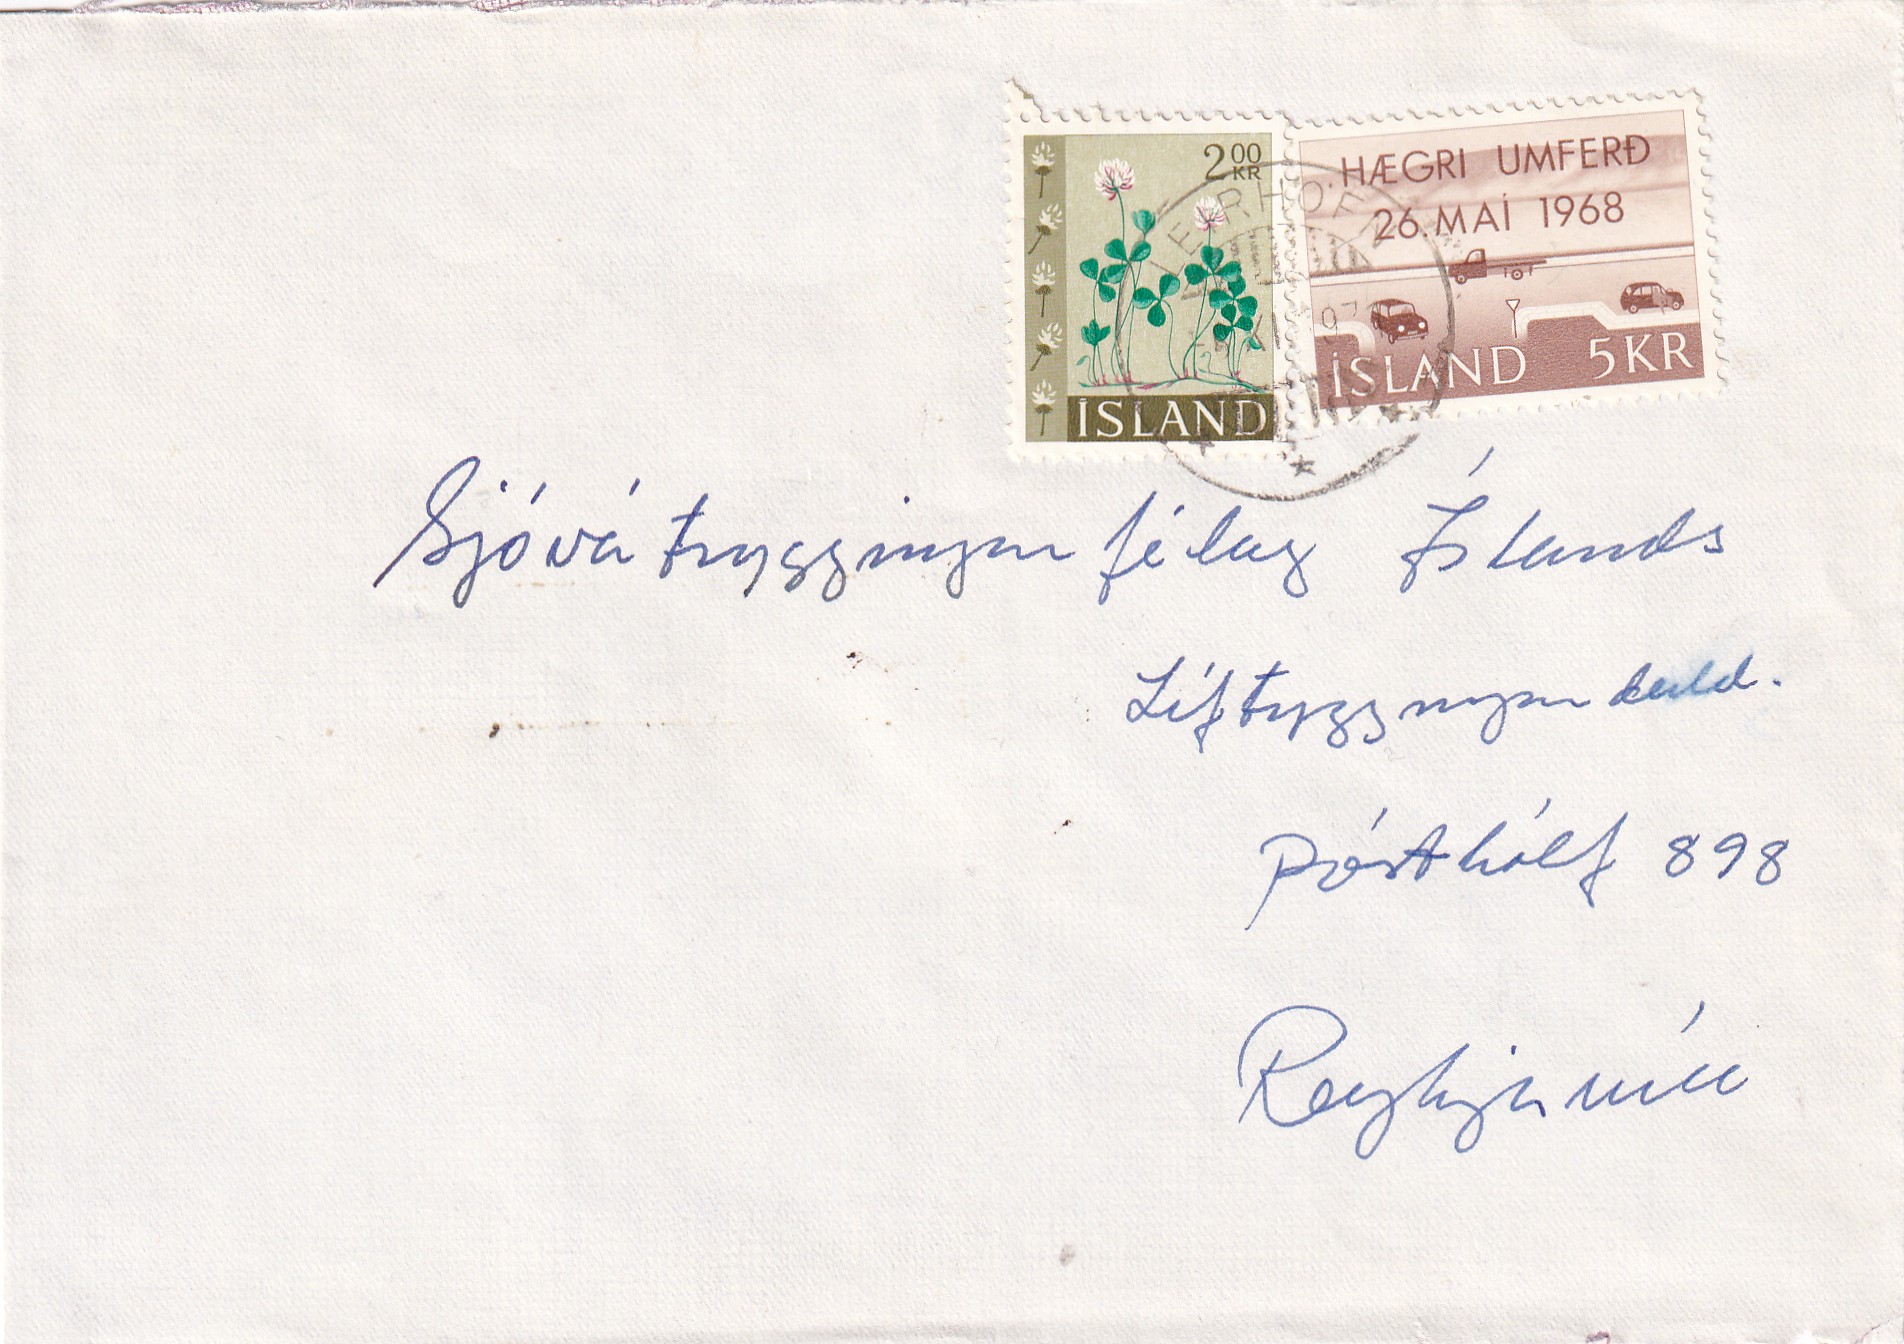 2 00
KR
ÍSLAND
HÆGRI UMFERÐ
26. MAÍ 1968
ÍSLAND 5 KR
Sjóvátryggingarfélag Íslands
Líftryggingardeild.
Pósthólf 898
Reykjavík